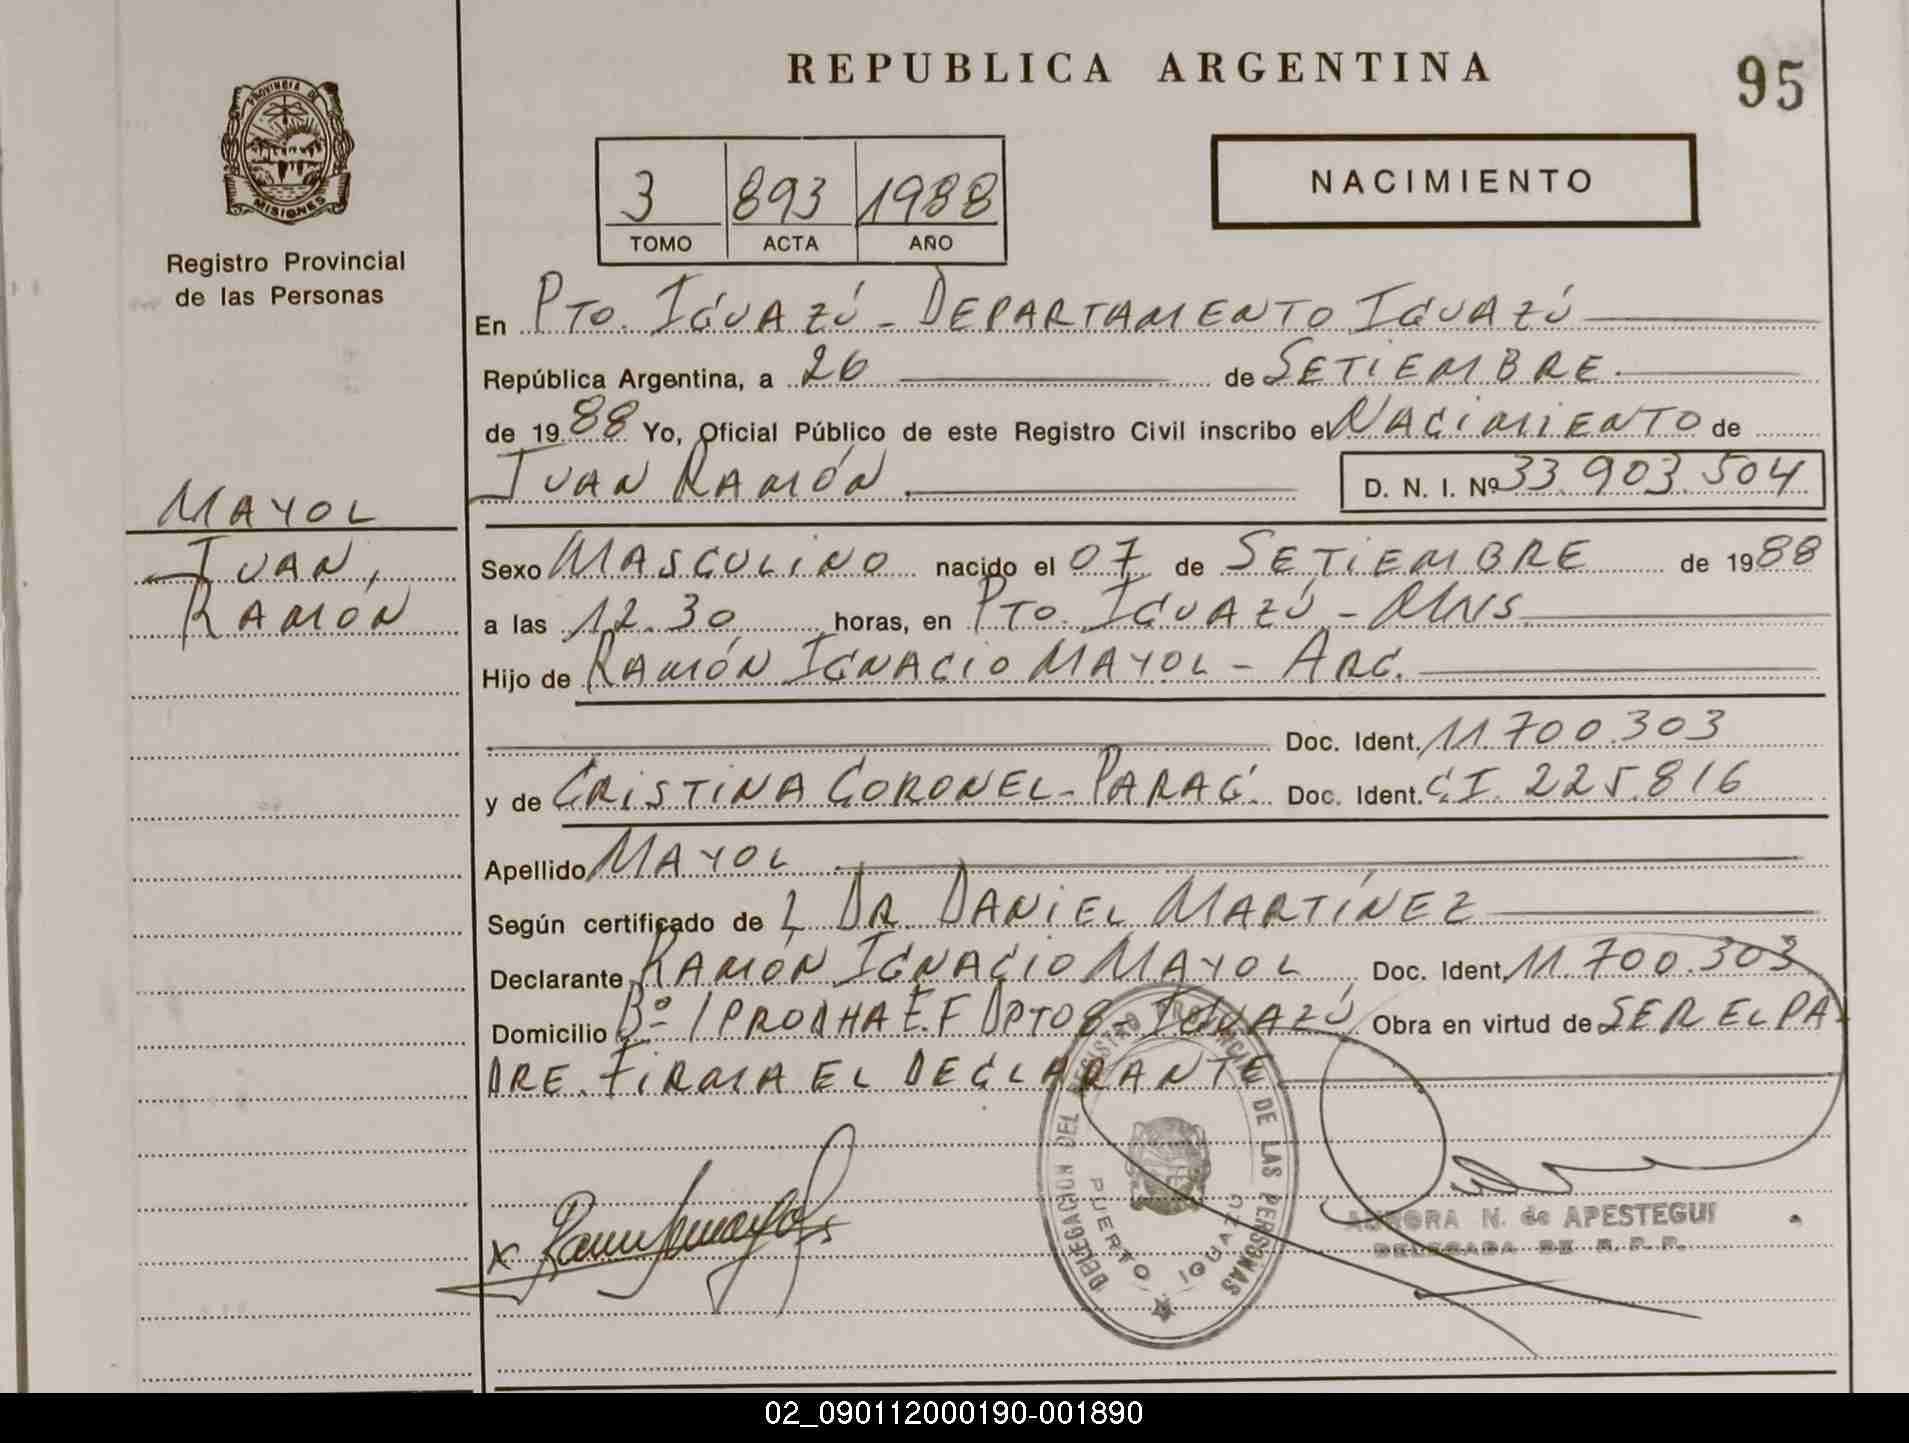 REPUBLICA ARGENTINA
95
PROVINCIA DE
MISIONES
Registro Provincial
de las Personas
NACIMIENTO
3 893 1988
TOMO ACTA AÑO
En PTO. IGUAZÚ - DEPARTAMENTO IGUAZÚ
República Argentina, a 26 de SETIEMBRE.
de 1988 Yo, Oficial Público de este Registro Civil inscribo el NACIMIENTO de
JUAN RAMÓN.
D. N. I. Nº 33.903.504
MAYOL
JUAN,
RAMÓN
Sexo MASCULINO nacido el 07 de SETIEMBRE de 1988
a las 12.30 horas, en PTO. IGUAZÚ - MNS
Hijo de RAMÓN IGNACIO MAYOL - ARG.
Doc. Ident. 11.700.303
y de CRISTINA CORONEL - PARAG. Doc. Ident. CI. 225.816
Apellido MAYOL
Según certificado de L DR. DANIEL MARTÍNEZ
Declarante RAMÓN IGNACIO MAYOL Doc. Ident. 11.700.303
Domicilio Bº IPRODHA E.F DPTO 8 - IGUAZÚ Obra en virtud de SER EL PA
DRE. FIRMA EL DECLARANTE
DELEGACION DEL REGISTRO PROVINCIAL DE LAS PERSONAS
PUERTO IGUAZU
X
AURORA N. de APESTEGUI
DELEGADA DE R. P. P.
02_090112000190-001890